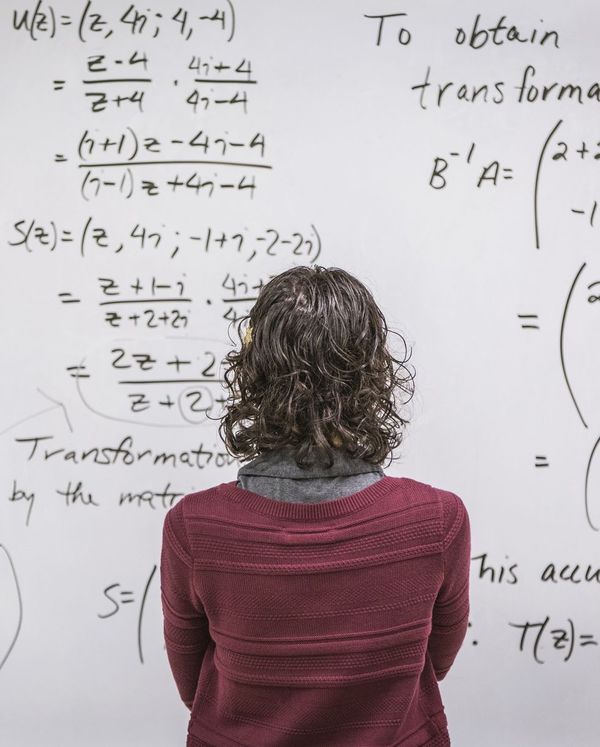 u(z)=(z, 4i; 4, -4)
= z-4 / z+4 · 4i+4 / 4i-4
= (i+1)z-4i-4 / (i-1)z+4i-4
S(z)=(z, 4i; -1+i, -2-2i)
= z+1-i / z+2+2i · 4i+ / 4
= 2z+2 / z+2+
Transformation
by the matri
S=(
To obtain
transforma
B⁻¹A= ( 2+2
-1
= ( 2
= (
This accu
: T(z)=